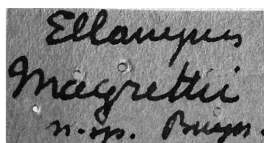 Ellampus
Magrettii
n. sp. Buyss.